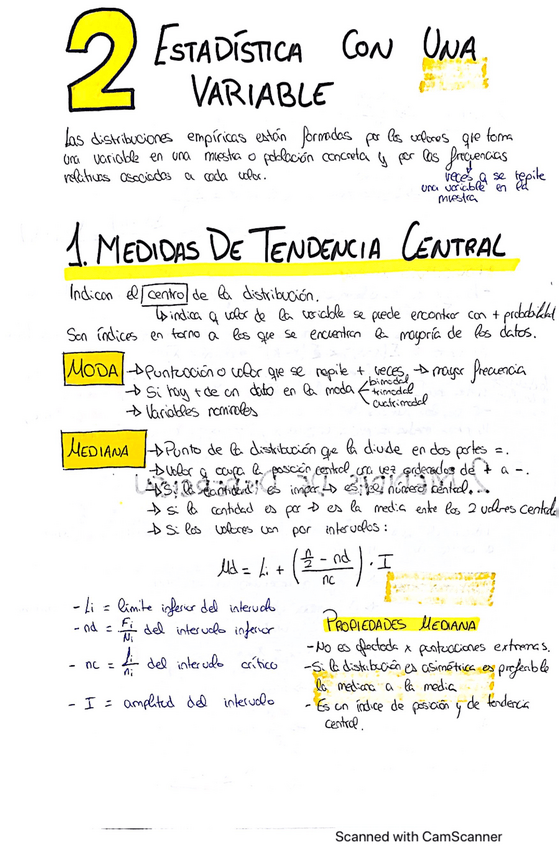 2 ESTADÍSTICA CON UNA
VARIABLE
Las distribuciones empíricas están formadas por los valores que toma
una variable en una muestra o población concreta y por las frecuencias
relativas asociadas a cada valor.
veces q se repite
una variable en la
muestra
1. MEDIDAS DE TENDENCIA CENTRAL
Indican el centro de la distribución.
↳ indica q valor de la variable se puede encontrar con + probabilidad
Son índices en torno a los que se encuentran la mayoría de los datos.
MODA → Puntuación o valor que se repite + veces → mayor frecuencia
→ Si hay + de un dato en la moda < bimodal
trimodal
cuatrimodal
→ Variables nominales
MEDIANA → Punto de la distribución que la divide en dos partes =.
→ Valor q ocupa la posición central una vez ordenados de + a -.
→ Si la cantidad es impar → es el número central.
→ Si la cantidad es par → es la media ente los 2 valores centrales
→ Si los valores van por intervalos:
Md = Li + (n/2 - nd / nc) · I
- Li = límite inferior del intervalo
- nd = Fi/Ni del intervalo inferior
- nc = fi/ni del intervalo crítico
- I = amplitud del intervalo
PROPIEDADES MEDIANA
- No es afectada x puntuaciones extremas.
- Si la distribución es asimétrica es preferible
la mediana a la media
- Es un índice de posición y de tendencia
central.
Scanned with CamScanner